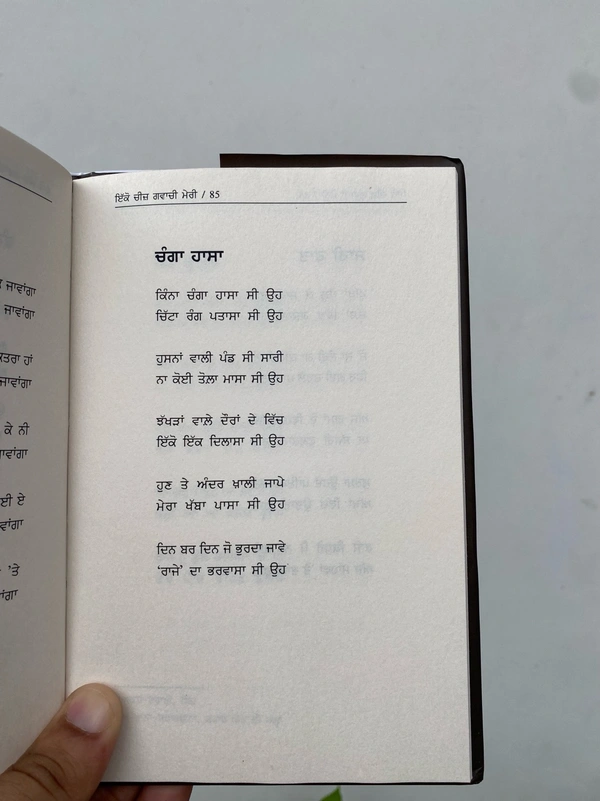 ਇੱਕੋ ਚੀਜ਼ ਗਵਾਚੀ ਮੇਰੀ / 85
ਚੰਗਾ ਹਾਸਾ
ਕਿੰਨਾ ਚੰਗਾ ਹਾਸਾ ਸੀ ਉਹ
ਚਿੱਟਾ ਰੰਗ ਪਤਾਸਾ ਸੀ ਉਹ
ਹੁਸਨਾਂ ਵਾਲੀ ਪੰਡ ਸੀ ਸਾਰੀ
ਨਾ ਕੋਈ ਤੋਲਾ ਮਾਸਾ ਸੀ ਉਹ
ਝੱਖੜਾਂ ਵਾਲੇ ਦੌਰਾਂ ਦੇ ਵਿੱਚ
ਇੱਕੋ ਇੱਕ ਦਿਲਾਸਾ ਸੀ ਉਹ
ਹੁਣ ਤੇ ਅੰਦਰ ਖ਼ਾਲੀ ਜਾਪੇ
ਮੇਰਾ ਖੱਬਾ ਪਾਸਾ ਸੀ ਉਹ
ਦਿਨ ਬਰ ਦਿਨ ਜੋ ਭੁਰਦਾ ਜਾਵੇ
‘ਰਾਜੇ’ ਦਾ ਭਰਵਾਸਾ ਸੀ ਉਹ
ਜਾਵਾਂਗਾ
ਜਾਵਾਂਗਾ
ਹਾਂ
ਜਾਵਾਂਗਾ
ਕੇ ਨੀ
ਏ
’ਤੇ